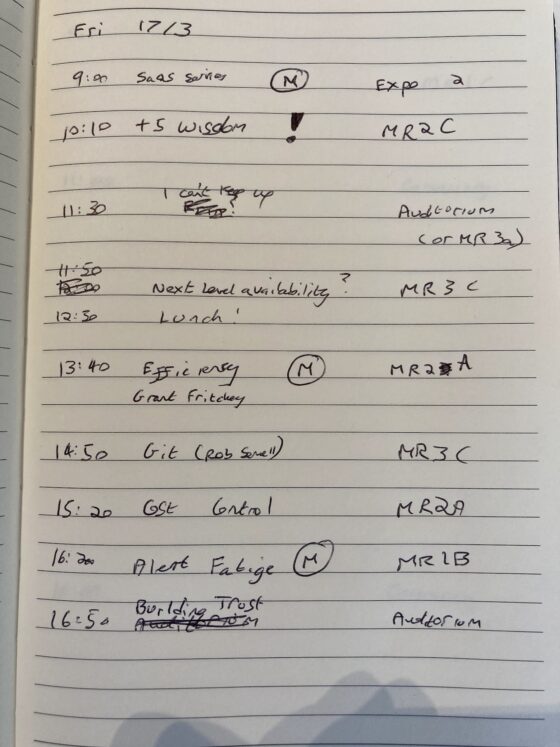 Fri 17/3
9:00 SaaS Series M Expo 2
10:10 +5 Wisdom ! MR2C
I can't keep up
11:30 ? Auditorium
(or MR 3a)
11:50
Next Level availability? MR3C
12:30 Lunch!
13:40 Efficiency M MR2A
Grant Fritchey
14:50 Git (Rob Sewell) MR3C
15:20 Cost Control MR2A
16:20 Alert Fatige M MR1B
Building Trust
16:50 Auditorium